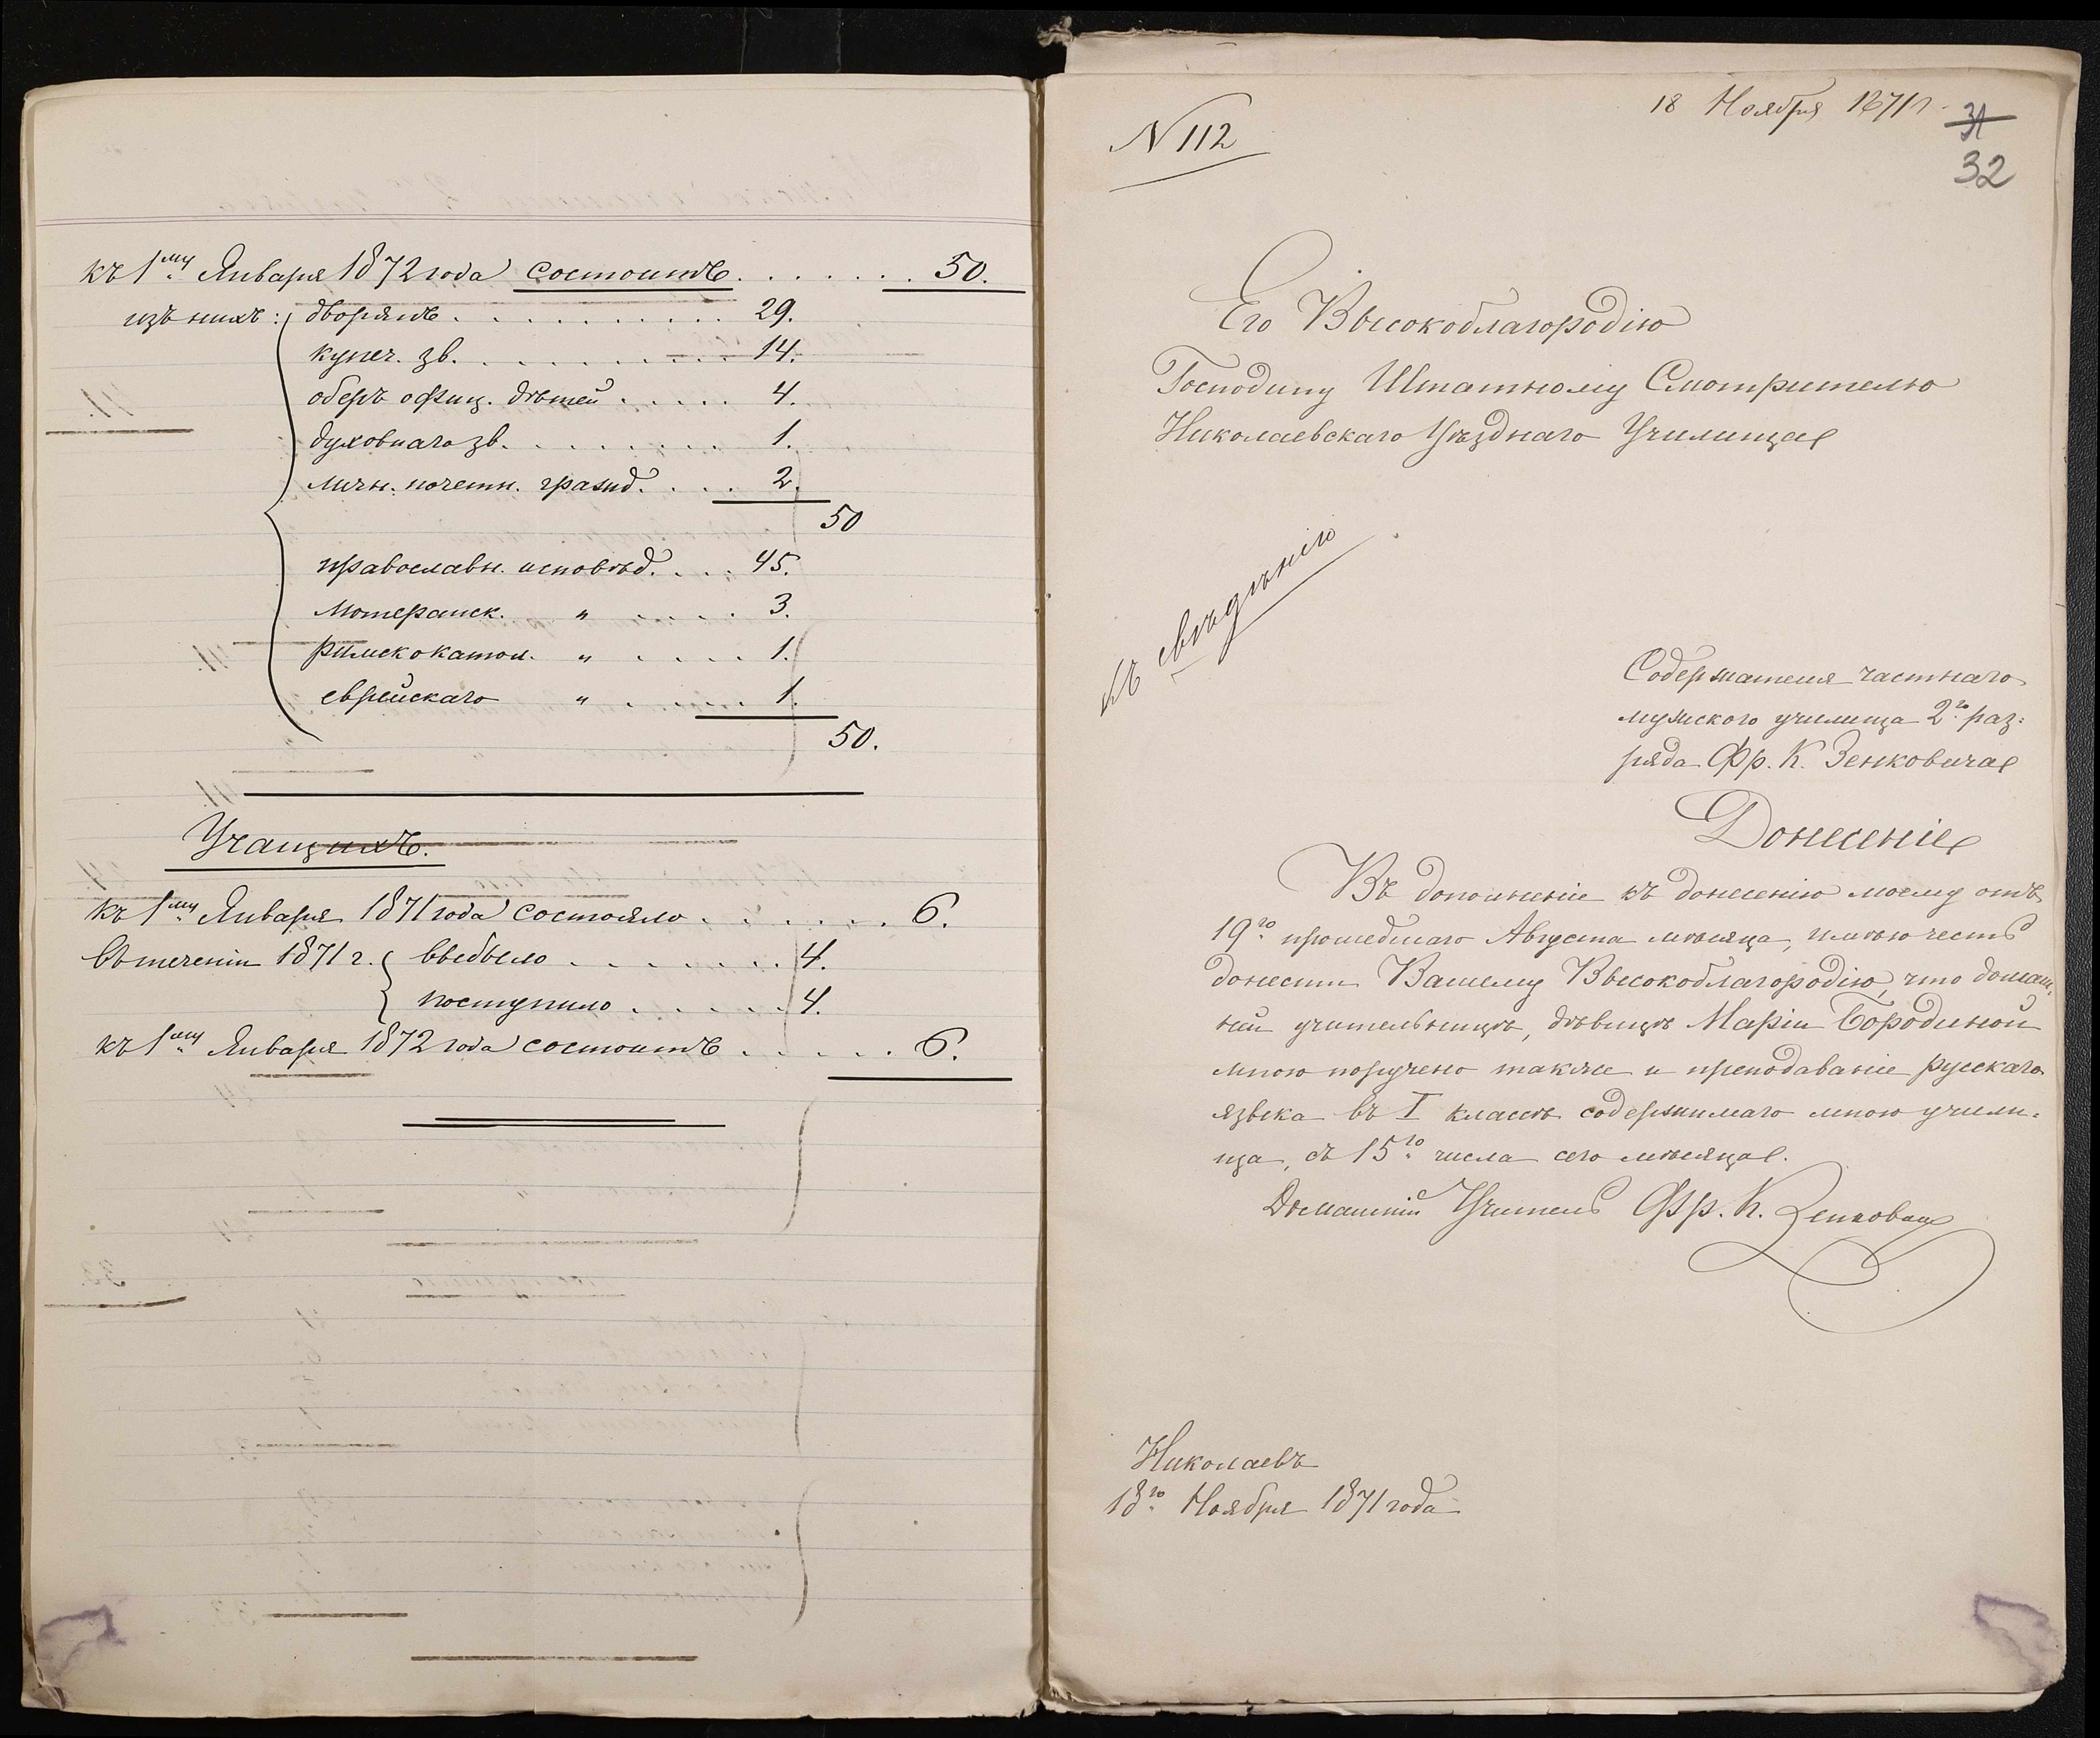 къ 1му Января 1872 года состоитъ . . . . . . . 50.
изъ нихъ: дворянъ . . . . . . . . . . 29.
купеч. зв. . . . . . . . . . 14.
оберъ офиц. дѣтей . . . . . 4.
духовнаго зв. . . . . . . . 1.
личн. почетн. гражд. . . . 2.
50
православн. исповѣд. . . . 45.
Лютеранск. " . . . . . 3.
римскокатол. " . . . . 1.
еврейскаго " . . . . . 1.
50.
Учащихъ.
къ 1му Января 1871 года состояло . . . . . . 6.
въ теченіи 1871 г. выбыло . . . . . . . 4.
поступило . . . . . 4.
къ 1му Января 1872 года состоитъ . . . . . 6.
18 Ноября 1871 г.
31
32
N 112
Его Высокоблагородію
Господину Штатному Смотрителю
Николаевскаго Уѣзднаго Училища
Къ свѣдѣнію
Содержателя частнаго
мужского училища 2го раз=
ряда Фр. К. Зенковича
Донесеніе
Въ дополненіе къ донесенію моему отъ
19го прошедшаго Августа мѣсяца, имѣю честь
донести Вашему Высокоблагородію, что домаш=
ней учительницѣ, дѣвицѣ Маріи Бородиной
мною поручено также и преподаваніе русскаго
языка въ I классѣ содержимаго мною учили=
ща, съ 15го числа сего мѣсяца.
Домашній Учитель Фр. К. Зенкович
Николаевъ
18го Ноября 1871 года